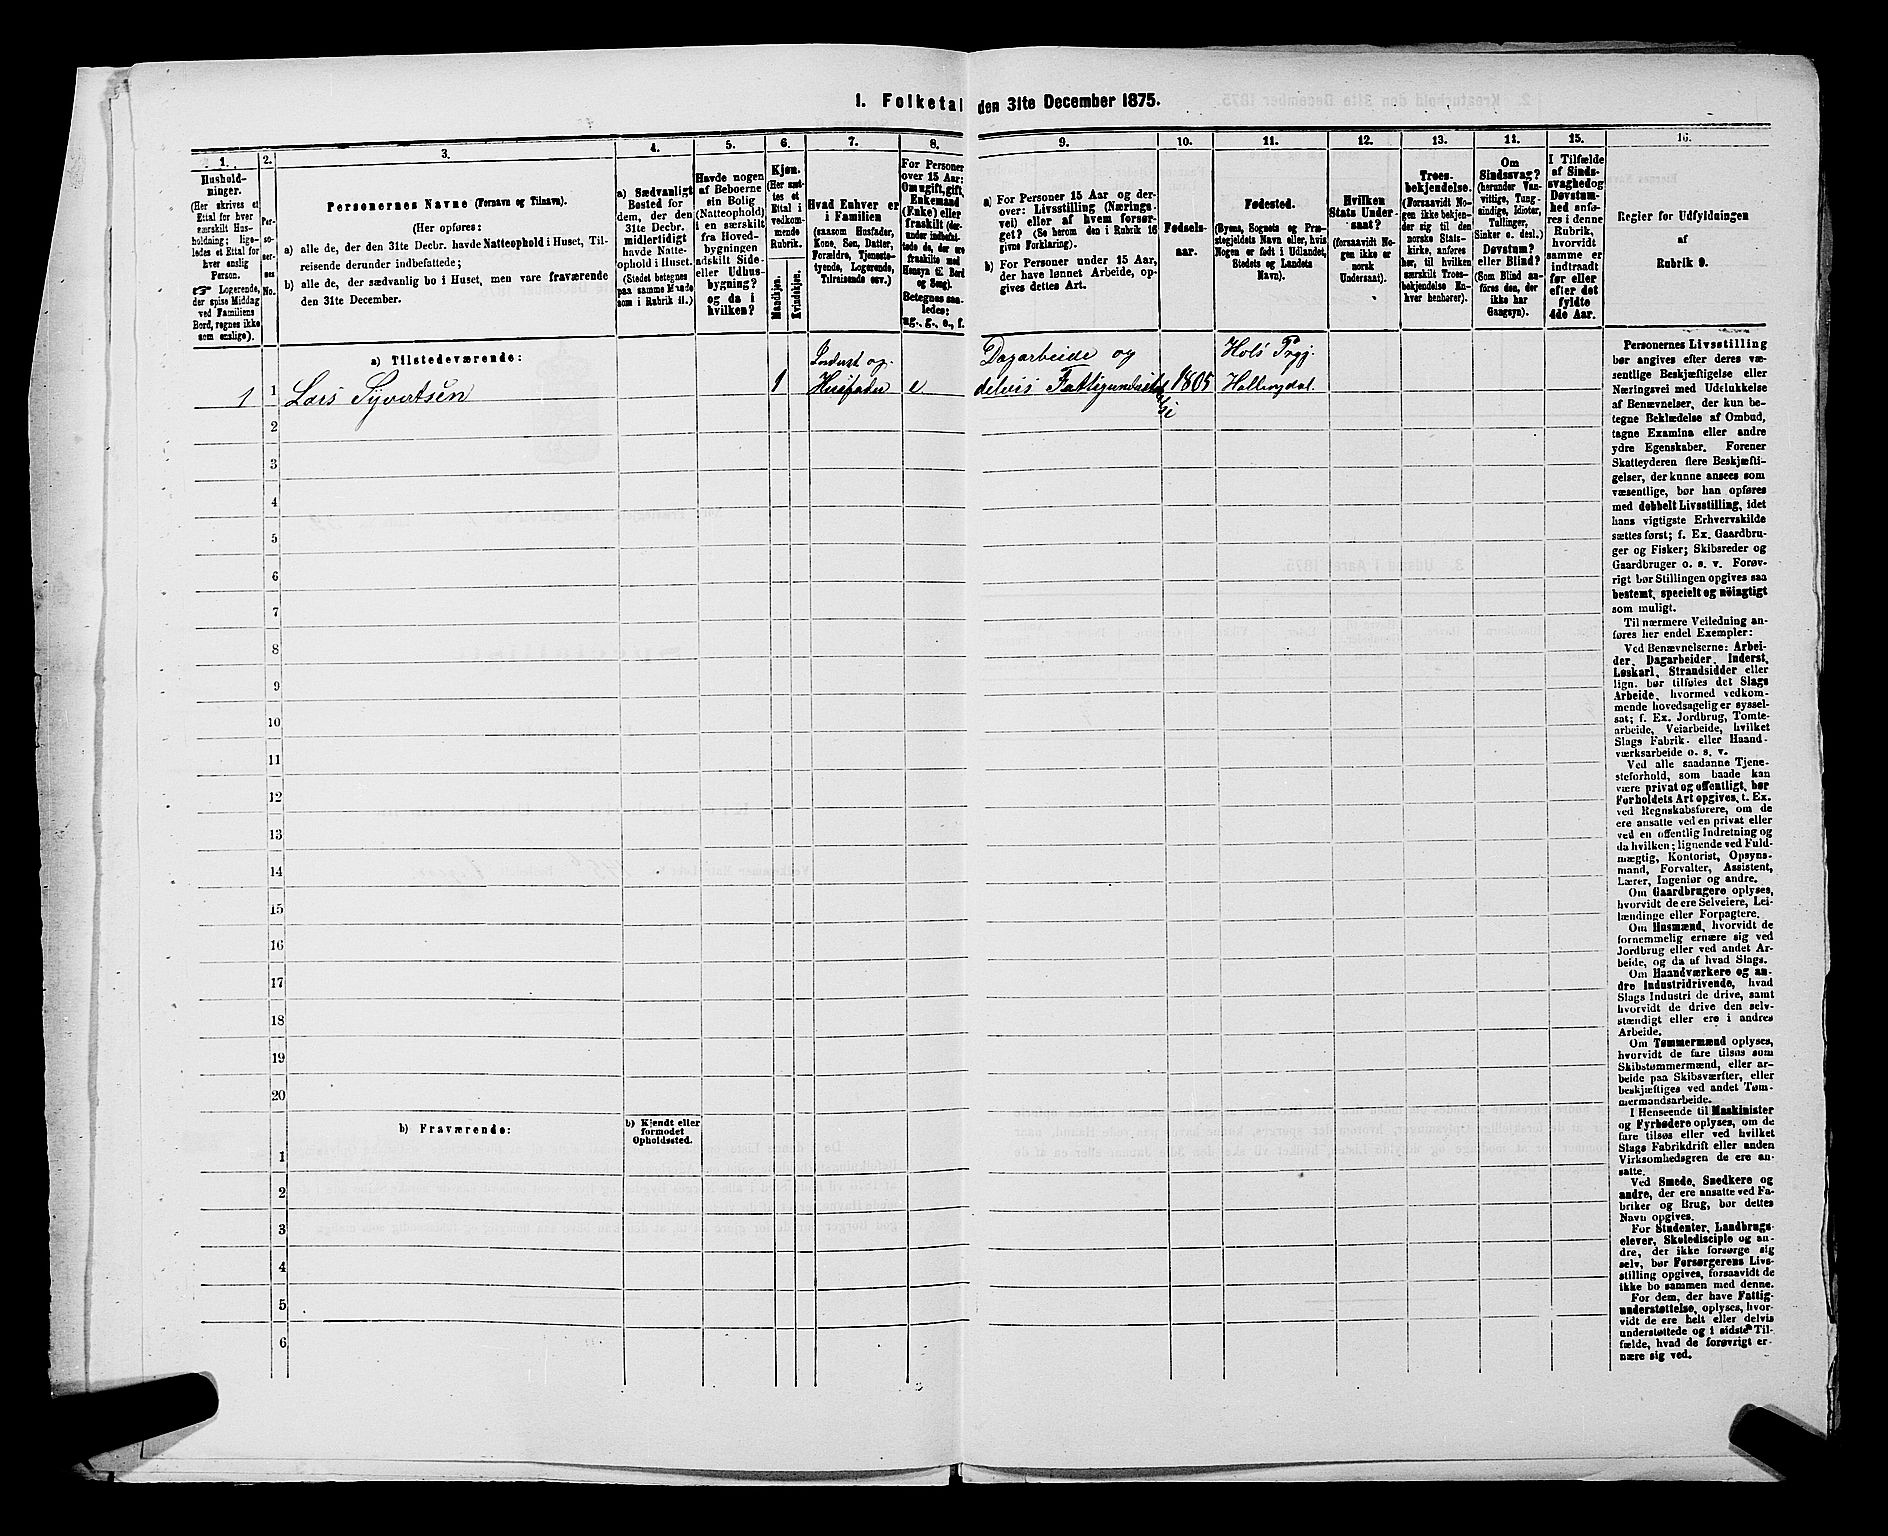 1. Folketal den 31te December 1875.
1.
Hushold-
ninger.
(Her skrives et
Ettal for hver
særskilt Hus-
holdning; lige-
ledes et Ettal for
hver enslig
Person.
Logerende,
der spise Middag
ved Familiens
Bord, regnes ikke
som enslige).
2.
Per-
so-
ner-
nes
No.
3.
Personernes Navne (Fornavn og Tilnavn).
(Her opføres:
a) alle de, der den 31te Decbr. havde Natteophold i Huset, Til-
reisende derunder indbefattede;
b) alle de, der sædvanlig bo i Huset, men vare fraværende
den 31te December.
4.
a) Sædvanligt
Bosted for
dem, der den
31te Decbr.
midlertidigt
havde Natte-
ophold i Huset.
(Stedet betegnes
paa samme Maade
som i Rubrik 11.)
5.
Havde nogen
af Beboerne
sin Bolig
(Natteophold)
i en særskilt
fra Hoved-
bygningen
adskilt Side-
eller Udhus-
bygning?
og da i
hvilken?
6.
Kjøn.
(Her sæt-
tes et
Ettal i
vedkom-
mende
Rubrik.
Mandkjøn.
Kvindekjøn.
7.
Hvad Enhver er
i Familien
(saasom Husfader,
Kone, Søn, Datter,
Forældre, Tjeneste-
tyende, Logerende,
Tilreisende osv.)
8.
For Personer
over 15 Aar:
Om ugift, gift,
Enkemand
(Enke) eller
fraskilt (der-
under indbefat-
tede de, der ere
fraskilte med
Hensyn til Bord
og Seng).
Betegnes saa-
ledes:
ug., g., e., f.
9.
a) For Personer 15 Aar og der-
over: Livsstilling (Nærings-
vei) eller af hvem forsør-
get? (Se herom den i Rubrik 16
givne Forklaring).
b) For Personer under 15 Aar,
der have lønnet Arbeide, op-
gives dettes Art.
10.
Fødsels-
aar.
11.
Fødested.
(Byens, Sognets og Præ-
stegjeldets Navn eller, hvis
Nogen er født i Udlandet,
Stedets og Landets
Navn).
12.
Hvilken
Stats Under-
saat?
(forsaavidt No-
gen ikke er
norsk
Undersaat).
13.
Troes-
bekjendelse.
(Forsaavidt No-
gen ikke bekjen-
der sig til den
norske Stats-
kirke, anføres
her, til hvilken
særskilt Troes-
bekjendelse En-
hver henhører).
14.
Om
Sindssvag?
(herunder Van-
vittige, Tung-
sindige, Idioter,
Tullinger,
Sinker o. desl.)
Døvstum?
eller Blind?
(Som Blind an-
føres den, der
ikke har
Gangsyn).
15.
I Tilfælde
af Sinds-
svaghed og
Døvstum-
hed anfø-
res i denne
Rubrik,
hvorvidt
samme er
indtraadt
før eller
efter det
fyldte
4de Aar.
16.
Regler for Udfyldningen
af
Rubrik 9.
a) Tilstedeværende:
1 1 Lars Syvertsen 1 Inderst og Husfader e Dagarbeide og delvis 1805 Hols Prgj. Hallingdal.
2
3
4
5
6
7
8
9
10
11
12
13
14
15
16
17
18
19
20
b) Fraværende:
b) Kjendt eller
formodet
Opholdssted.
1
2
3
4
5
6
Personernes Livsstilling
bør angives efter deres væ-
sentlige Beskjæftigelse eller
Næringsvei med Udelukkelse
af Benævnelser, der kun be-
tegne Beklædelse af Ombud,
tagne Examina eller andre
ydre Egenskaber. Forener
Skatteyderen flere Beskjæfti-
gelser, der kunne ansees som
væsentlige, bør han opføres
med dobbelt Livsstilling, idet
hans vigtigste Erhvervskilde
sættes først; f. Ex. Gaardbru-
ger og Fisker; Skibsreder og
Gaardbruger o. s. v. Forøv-
rigt bør Stillingen opgives saa
bestemt, specielt og nøiagtigt
som muligt.
Til nærmere Veiledning an-
føres her endel Exempler:
Ved Benævnelserne: Arbei-
der, Dagarbeider, Inderst,
Løskarl, Strandsidder eller
lign. bør tilføies det Slags
Arbeide, hvormed vedkom-
mende hovedsagelig er syssel-
sat; f. Ex. Jordbrug, Tomte-
arbeide, Veiarbeide, hvilket
Slags Fabrik- eller Haand-
værksarbeide o. s. v.
Ved alle saadanne Tje-
nesteforhold, som baade kan
være privat og offentligt, bør
Forholdets Art opgives, t. Ex.
ved Regnskabsførere, om de
ere ansatte ved en privat eller
ved en offentlig Indretning og
da hvilken; lignende ved Fuld-
mægtig, Kontorist, Opsyns-
mand, Forvalter, Assistent,
Lærer, Ingeniør og andre.
Om Gaardbrugere oplyses,
hvorvidt de ere Selveiere, Lei-
lændinge eller Forpagtere.
Om Husmænd, hvorvidt de
fornemmelig ernære sig ved
Jordbrug eller ved andet Ar-
beide, og da af hvad Slags.
Om Haandværkere og an-
dre Industridrivende, hvad
Slags Industri de drive, samt
hvorvidt de drive den selv-
stændigt eller ere i andres
Arbeide.
Om Tømmermænd oplyses,
hvorvidt de fare tilsøs som
Skibstømmermænd, eller ar-
beide paa Skibsværfter, eller
beskjæftiges ved andet Tøm-
mermandsarbeide.
I Henseende til Maskinister
og Fyrbødere oplyses, om de
fare tilsøs eller ved hvilket
Slags Fabrikdrift eller anden
Virksomhedsgren de ere an-
satte.
Ved Smede, Snedkere og
andre, der ere ansatte ved Fa-
briker og Brug, bør dettes
Navn opgives.
For Studenter, Landbrugs-
elever, Skoledisciple og an-
dre, der ikke forsørge sig
selv, bør Forsørgerens Livs-
stilling opgives, forsaavidt de
ikke bo sammen med denne.
For dem, der have Fattig-
understøttelse, oplyses, hvor-
vidt de ere helt eller delvis
understøttede og i sidste Til-
fælde, hvad de forøvrigt er-
nære sig ved.